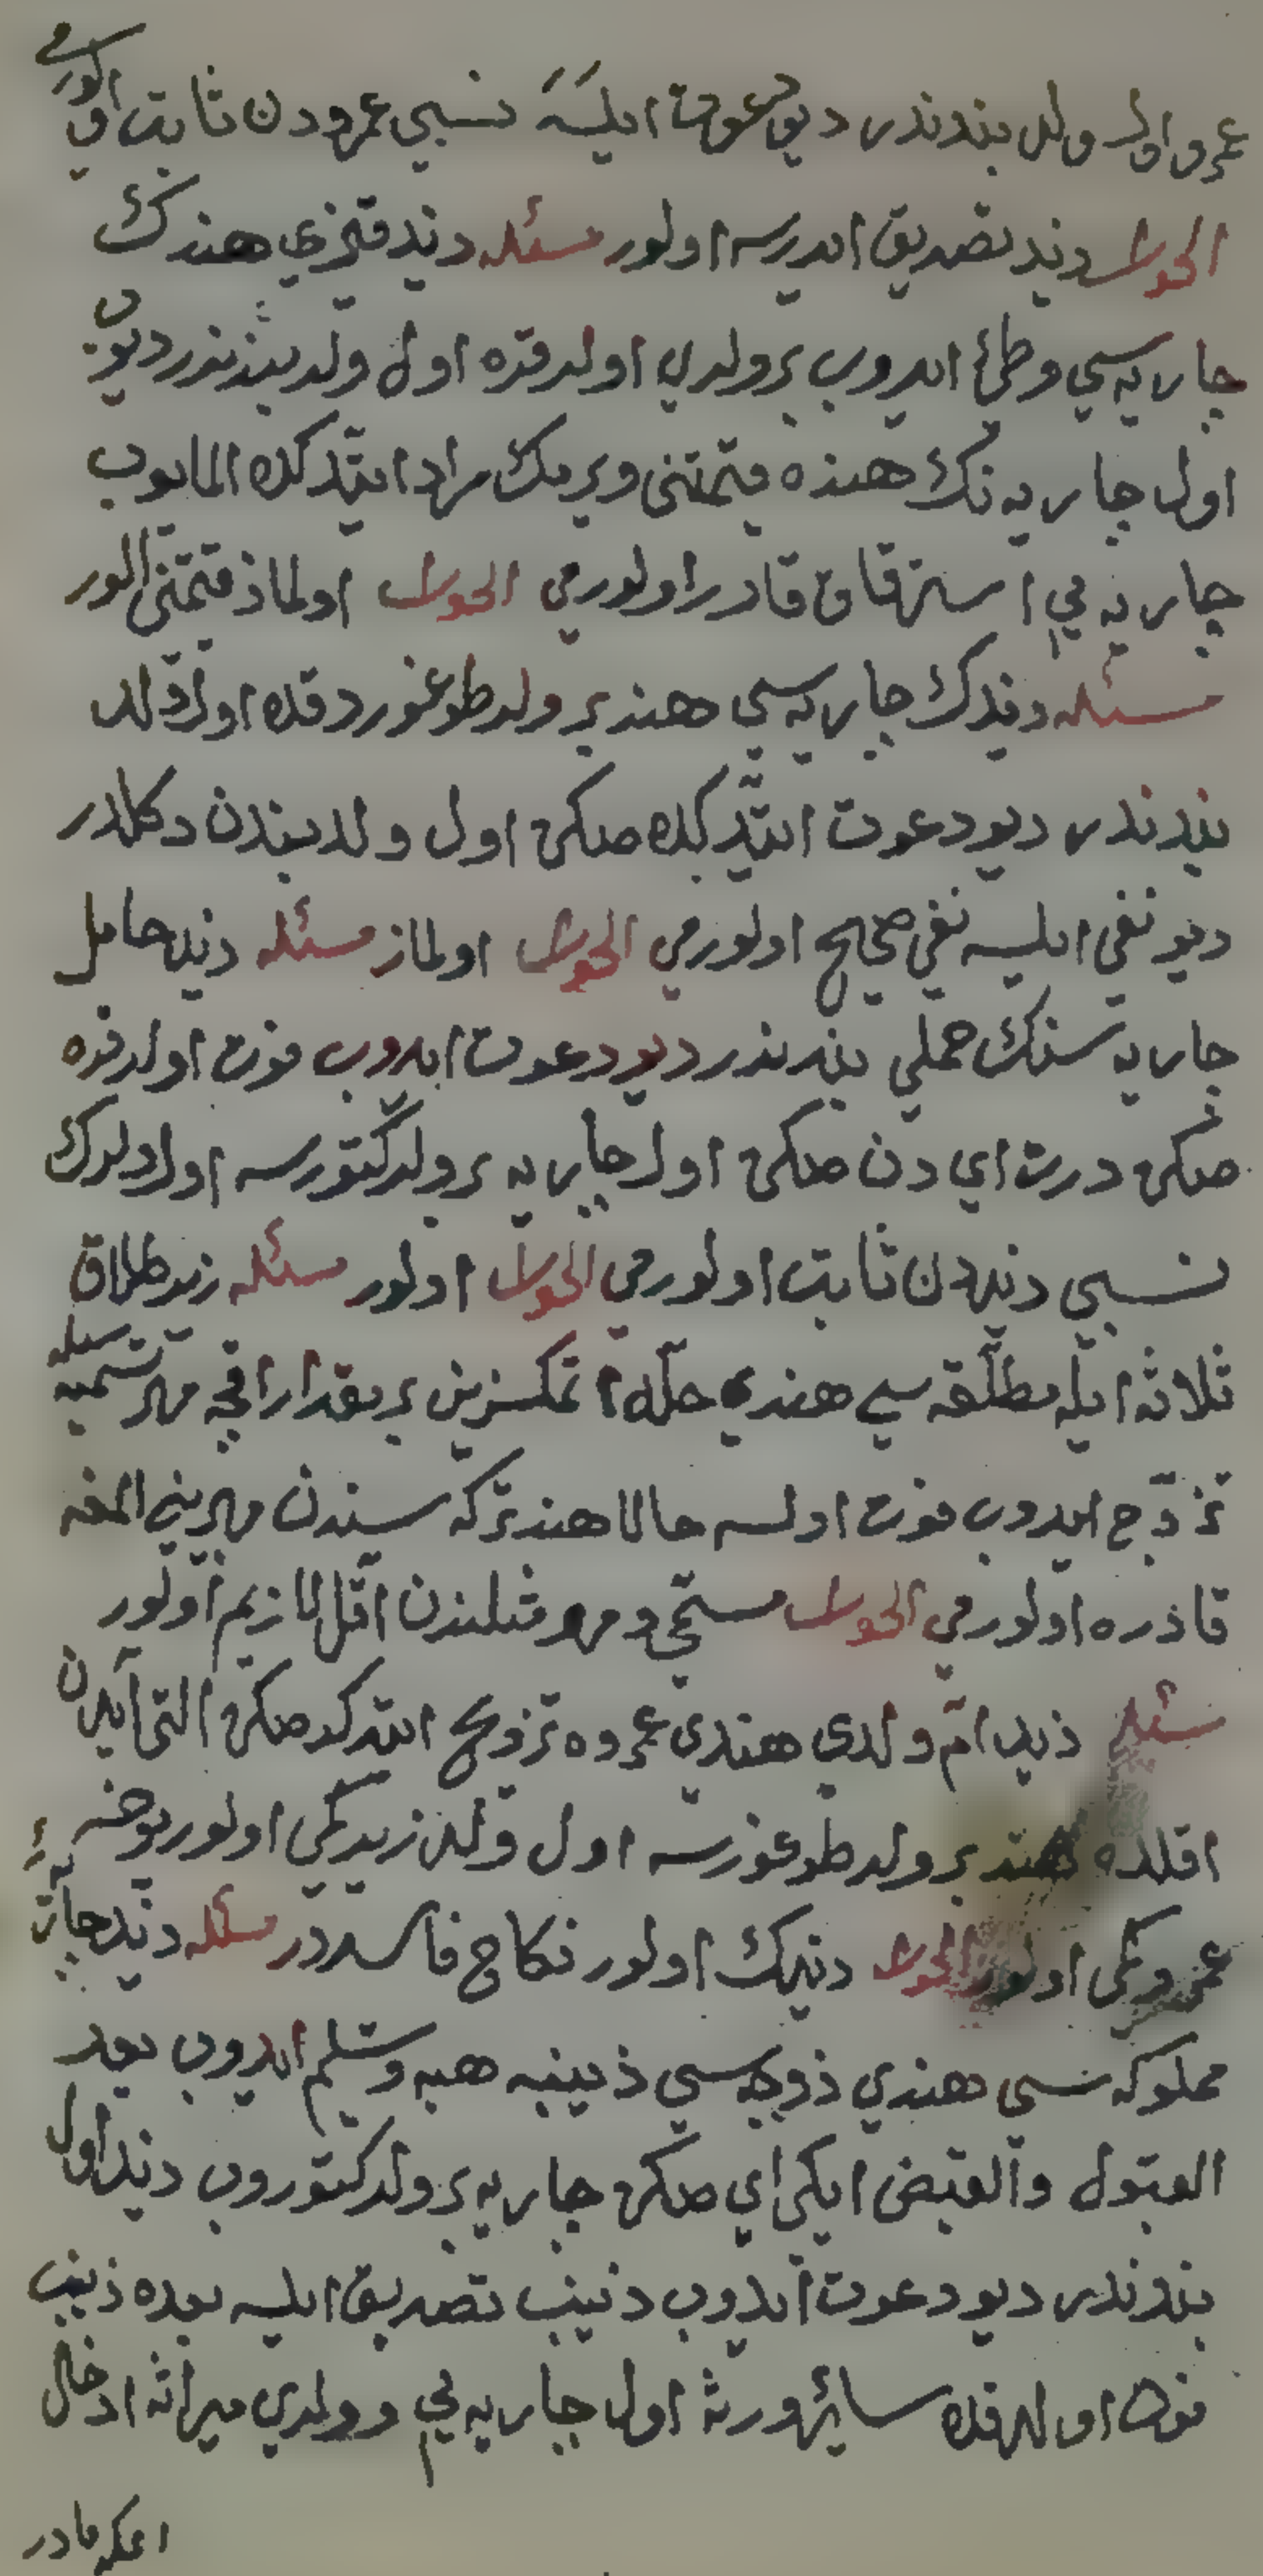 عمرو اول ولد بندندر ديو دعوت ايلسه نسبي عمرودن ثابت اولورمي
الجواب زيد تصديق ايدرسه اولور مسئله زيد قيزي هندك
جاريه سي وطئ ايدوب بر ولدي اولدقده اول ولد بندندر ديوب
اول جاريه نك هنده قيمتني ويرمك مراد ايتدكده المايوب
جاريه يي استرقاق قادر اولورمي الجواب اولماز قيمتني الور
مسئله زيدك جاريه سي هند بر ولد طوغوردقده اول ولد
بندندر ديو دعوت ايتدكده صكره اول ولد بندن دكلدر
ديو نفي ايلسه نفي صحيح اولورمي الجواب اولماز مسئله زيد حامل
جاريه سنك حملي بندندر ديو دعوت ايدوب فوت اولدقده
صكره درت اي دن صكره اول جاريه بر ولد كتورسه اول ولدك
نسبي زيددن ثابت اولورمي الجواب اولور مسئله زيد طلاق
ثلاثه ايله مطلقه سي هندي حله اتمكسزين بر مقدار اقچه مهر تسميه سيله
تزوج ايدوب فوت اولسه حالا هند تركه سندن مهريني المغه
قادره اولورمي الجواب مسمى و مهر مثلندن اقل لازيم اولور
مسئله زيد ام ولدي هندي عمروه تزويج ايتدكدن صكره التي ايدن
اقلده هند بر ولد طوغورسه اول ولد زيدكمي اولور يوخسه
عمروكمي اولور الجواب زيدك اولور نكاح فاسددر مسئله زيد جاريه
مملوكه سي هندي زوجه سي زينبه هبه وتسليم ايدوب بعد
القبول والقبض ايكي اي صكره جاريه بر ولد كتوروب زيد اول
بندندر ديو دعوت ايدوب زينب تصديق ايلسه بعده زينب
فوت اولدقده سائر ورثه اول جاريه يي و ولدي ميراثه ادخال
اتمكه قادر